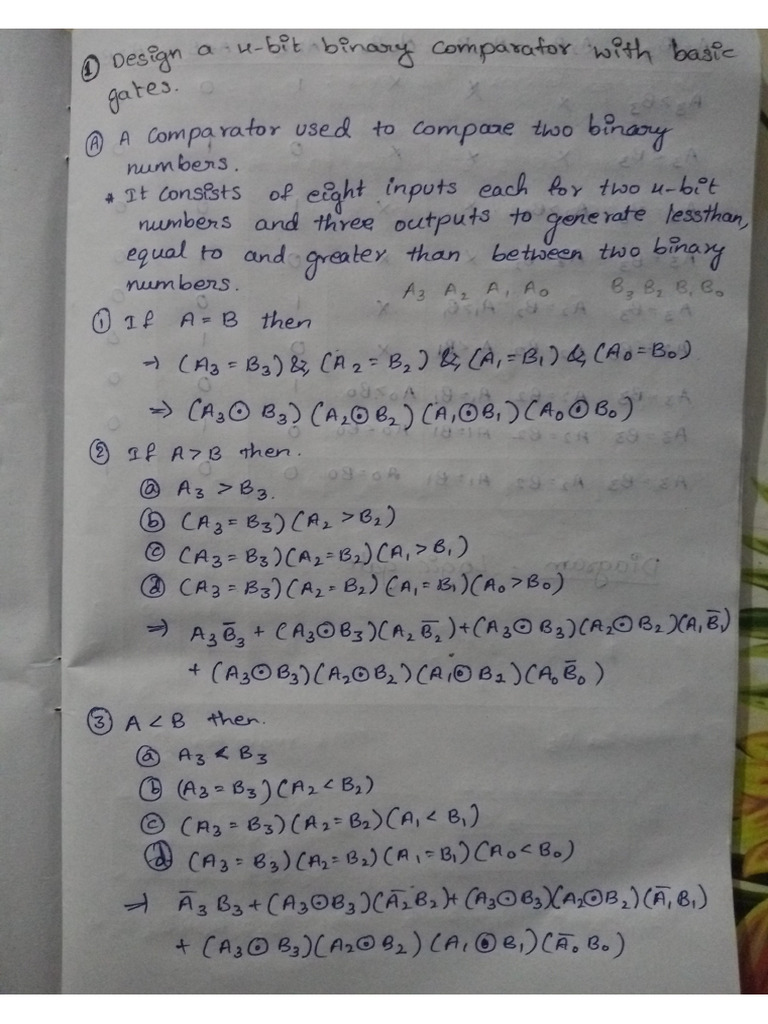 ① Design a 4-bit binary comparator with basic
gates.
Ⓐ A comparator used to compare two binary
numbers.
* It consists of eight inputs each for two 4-bit
numbers and three outputs to generate lessthan,
equal to and greater than between two binary
numbers.
A₃ A₂ A₁ A₀ B₃ B₂ B₁ B₀
① If A = B then
→ (A₃ = B₃) & (A₂ = B₂) & (A₁ = B₁) & (A₀ = B₀)
⇒ (A₃ ⊙ B₃) (A₂ ⊙ B₂) (A₁ ⊙ B₁) (A₀ ⊙ B₀)
② If A > B then.
ⓐ A₃ > B₃.
ⓑ (A₃ = B₃) (A₂ > B₂)
ⓒ (A₃ = B₃) (A₂ = B₂) (A₁ > B₁)
ⓓ (A₃ = B₃) (A₂ = B₂) (A₁ = B₁) (A₀ > B₀)
⇒ A₃ B̅₃ + (A₃ ⊙ B₃) (A₂ B̅₂) + (A₃ ⊙ B₃) (A₂ ⊙ B₂) (A₁ B̅₁)
+ (A₃ ⊙ B₃) (A₂ ⊙ B₂) (A₁ ⊙ B₂) (A₀ B̅₀)
③ A < B then.
ⓐ A₃ < B₃
ⓑ (A₃ = B₃) (A₂ < B₂)
ⓒ (A₃ = B₃) (A₂ = B₂) (A₁ < B₁)
ⓓ (A₃ = B₃) (A₂ = B₂) (A₁ = B₁) (A₀ < B₀)
⇒ A̅₃ B₃ + (A₃ ⊙ B₃) (A̅₂ B₂) + (A₃ ⊙ B₃) (A₂ ⊙ B₂) (A̅₁ B₁)
+ (A₃ ⊙ B₃) (A₂ ⊙ B₂) (A₁ ⊙ B₁) (A̅₀ B₀)